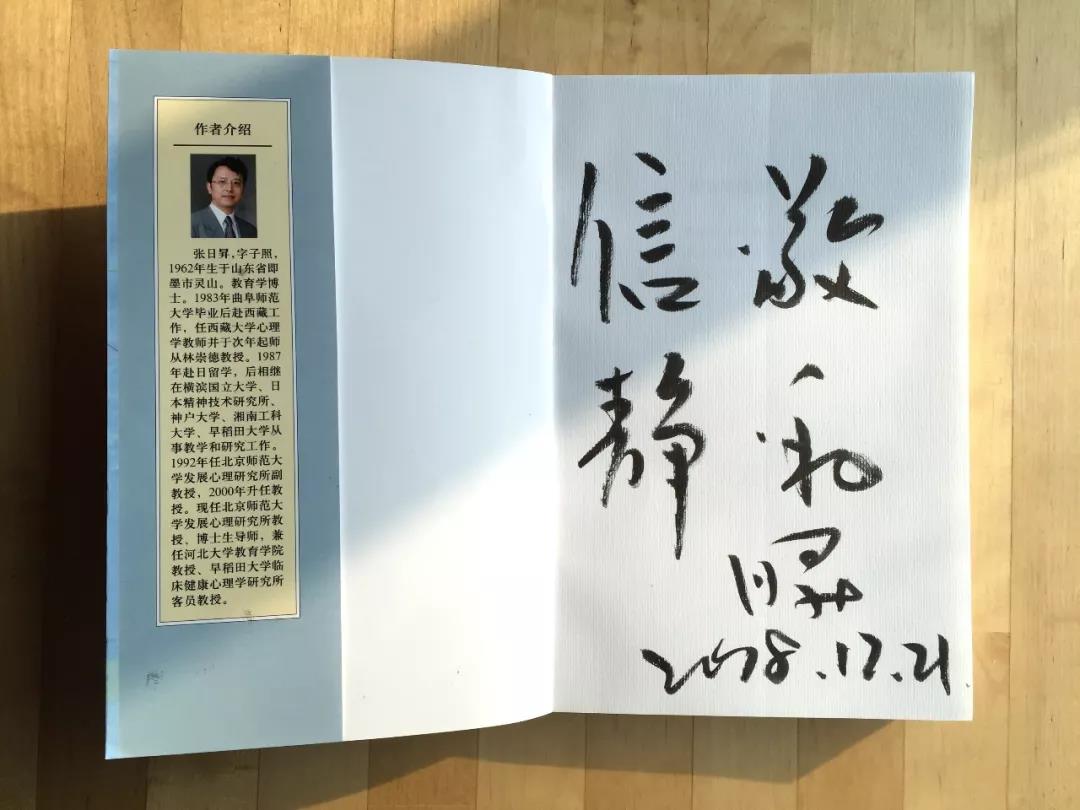 作者介绍
张日昇,字子照,
1962年生于山东省即
墨市灵山。教育学博
士。1983年曲阜师范
大学毕业后赴西藏工
作，任西藏大学心理
学教师并于次年起师
从林崇德教授。1987
年赴日留学，后相继
在横滨国立大学、日
本精神技术研究所、
神户大学、湘南工科
大学、早稻田大学从
事教学和研究工作。
1992年任北京师范大
学发展心理研究所副
教授，2000年升任教
授。现任北京师范大
学发展心理研究所教
授、博士生导师，兼
任河北大学教育学院
教授、早稻田大学临
床健康心理学研究所
客员教授。
敬
信静
日昇
2018.12.21